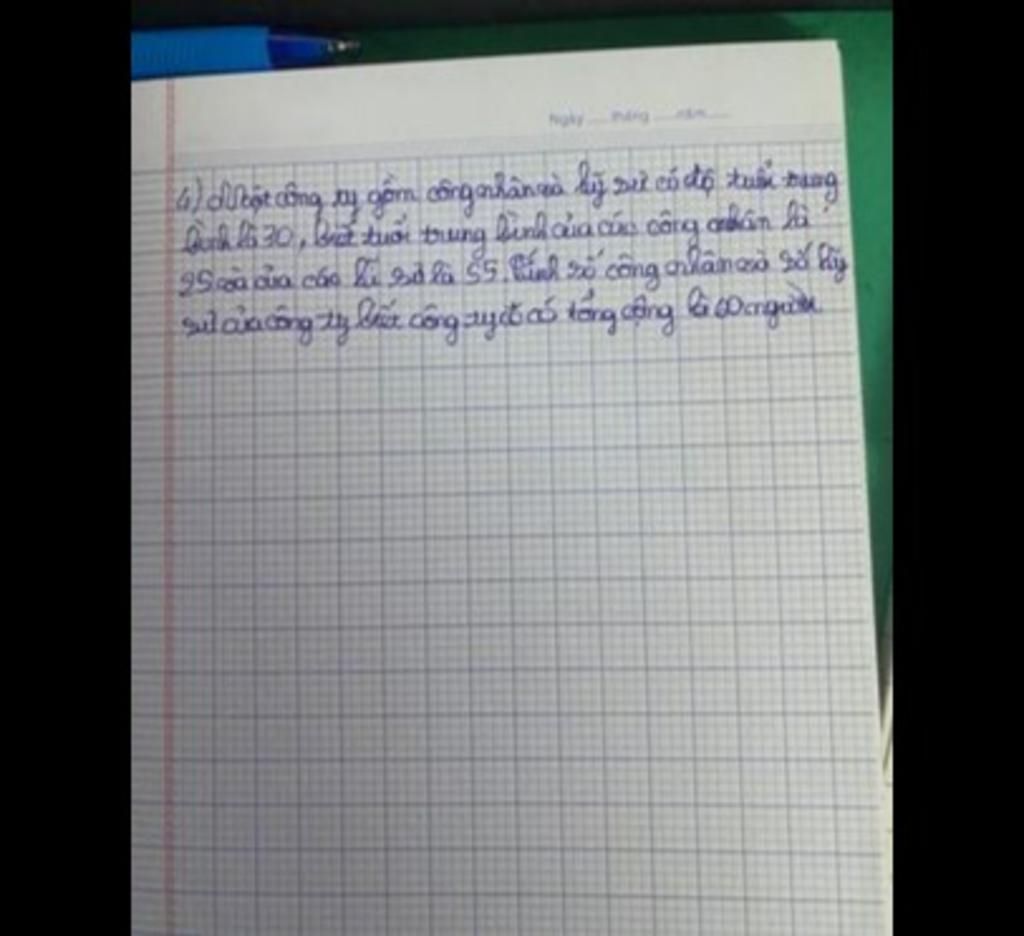 Ngày.....tháng.....năm.....
6) Một công ty gồm công nhân và kỹ sư có độ tuổi trung
bình là 30, biết tuổi trung bình của các công nhân là
25 và của các kĩ sư là 55. Tính số công nhân và số kỹ
sư của công ty biết công ty đó có tổng cộng là 60 người